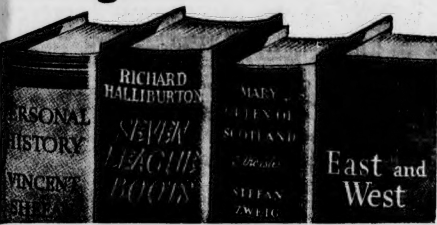 PERSONAL
HISTORY
VINCENT
SHEEAN
RICHARD
HALLIBURTON
SEVEN
LEAGUE
BOOTS
MARY
QUEEN OF
SCOTLAND
STEFAN
ZWEIG
East and
West